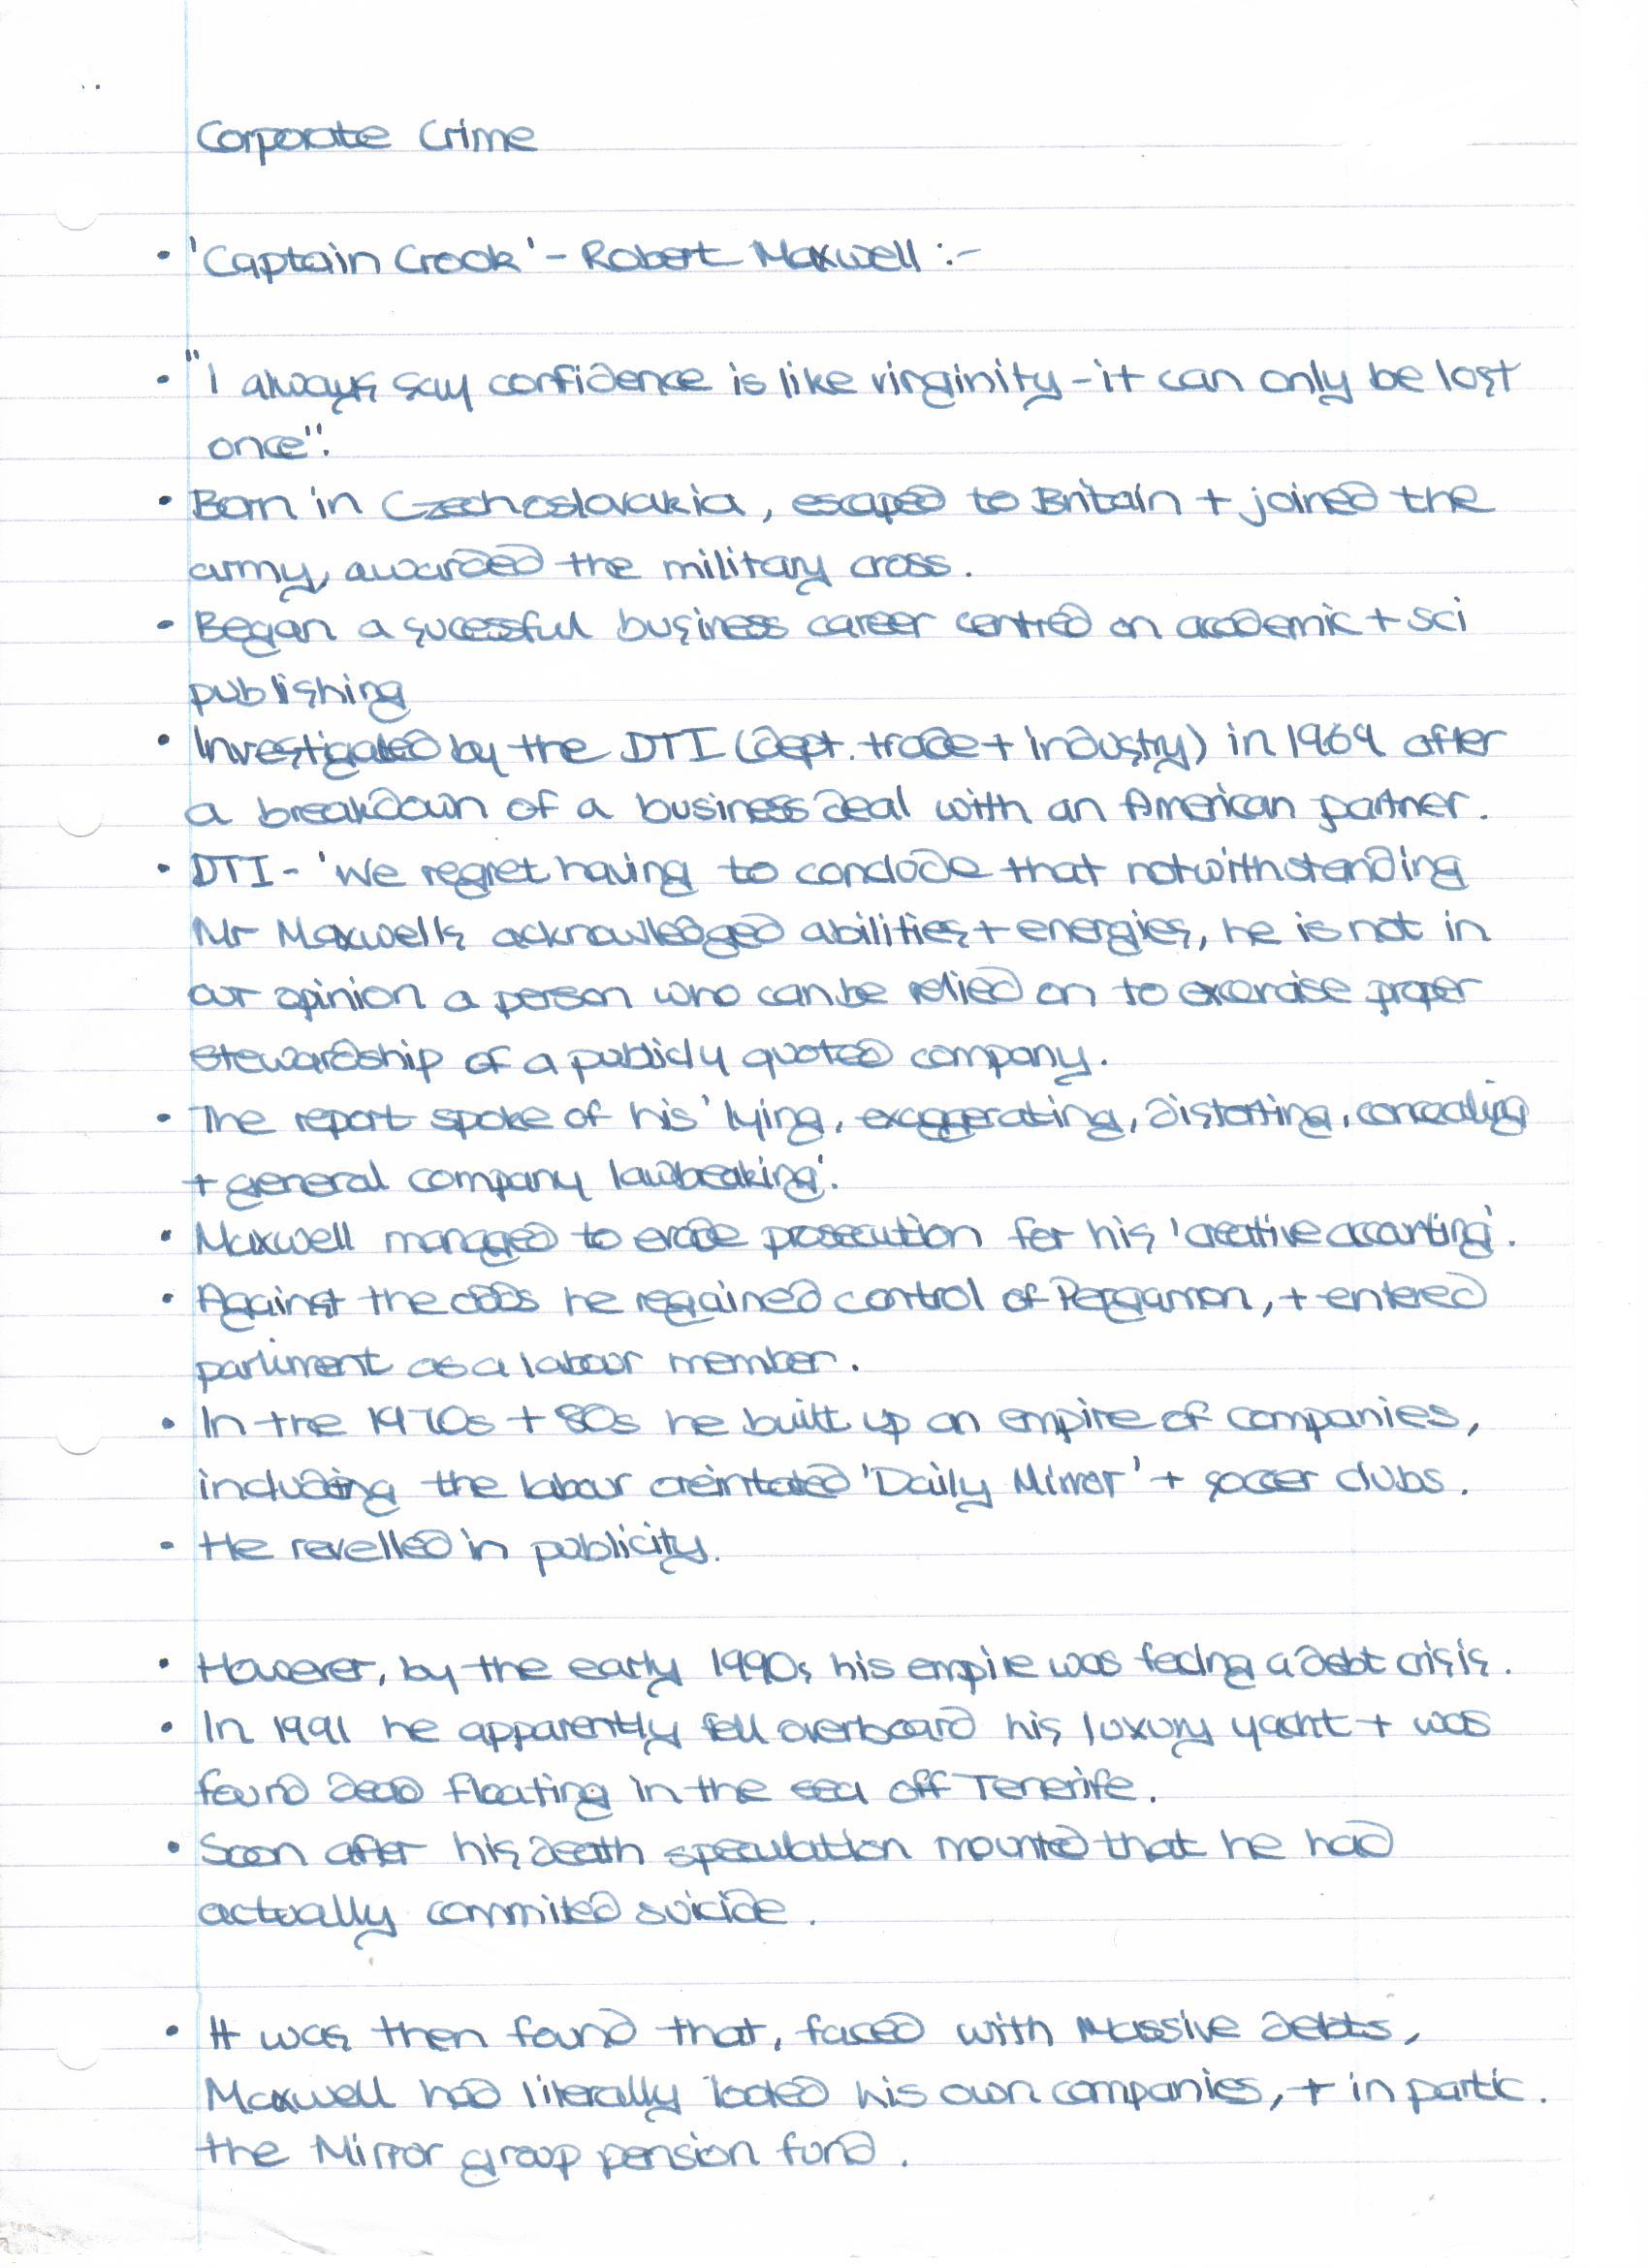 Corporate Crime
• 'Captain Crook' - Robert Maxwell :-
• "I always say confidence is like virginity - it can only be lost
once".
• Born in Czechoslovakia, escaped to Britain + joined the
army, awarded the military cross.
• Began a sucessful business career centred on academic + sci
publishing
• Investigated by the DTI (dept. trade + industry) in 1969 after
a breakdown of a business deal with an American partner.
• DTI - 'We regret having to conclude that notwithstanding
Mr Maxwells acknowledged abilities + energies, he is not in
our opinion a person who can be relied on to exercise proper
stewardship of a publicly quoted company.
• The report spoke of his 'lying, exaggerating, distorting, concealing
+ general company lawbeaking'.
• Maxwell managed to evade prosecution for his 'creative accounting'.
• Against the odds he regained control of Pergamon, + entered
parliment as a labour member.
• In the 1970s + 80s he built up an empire of companies,
including the labour oreintated 'Daily Mirror' + soccer clubs.
• He revelled in publicity.
• However, by the early 1990s his empire was facing a debt crisis.
• In 1991 he apparently fell overboard his luxury yacht + was
found dead floating in the sea off Tenerife.
• Soon after his death speculation mounted that he had
actually commited suicide.
• It was then found that, faced with massive debts,
Maxwell had literally looted his own companies, + in partic.
the Mirror group pension fund.